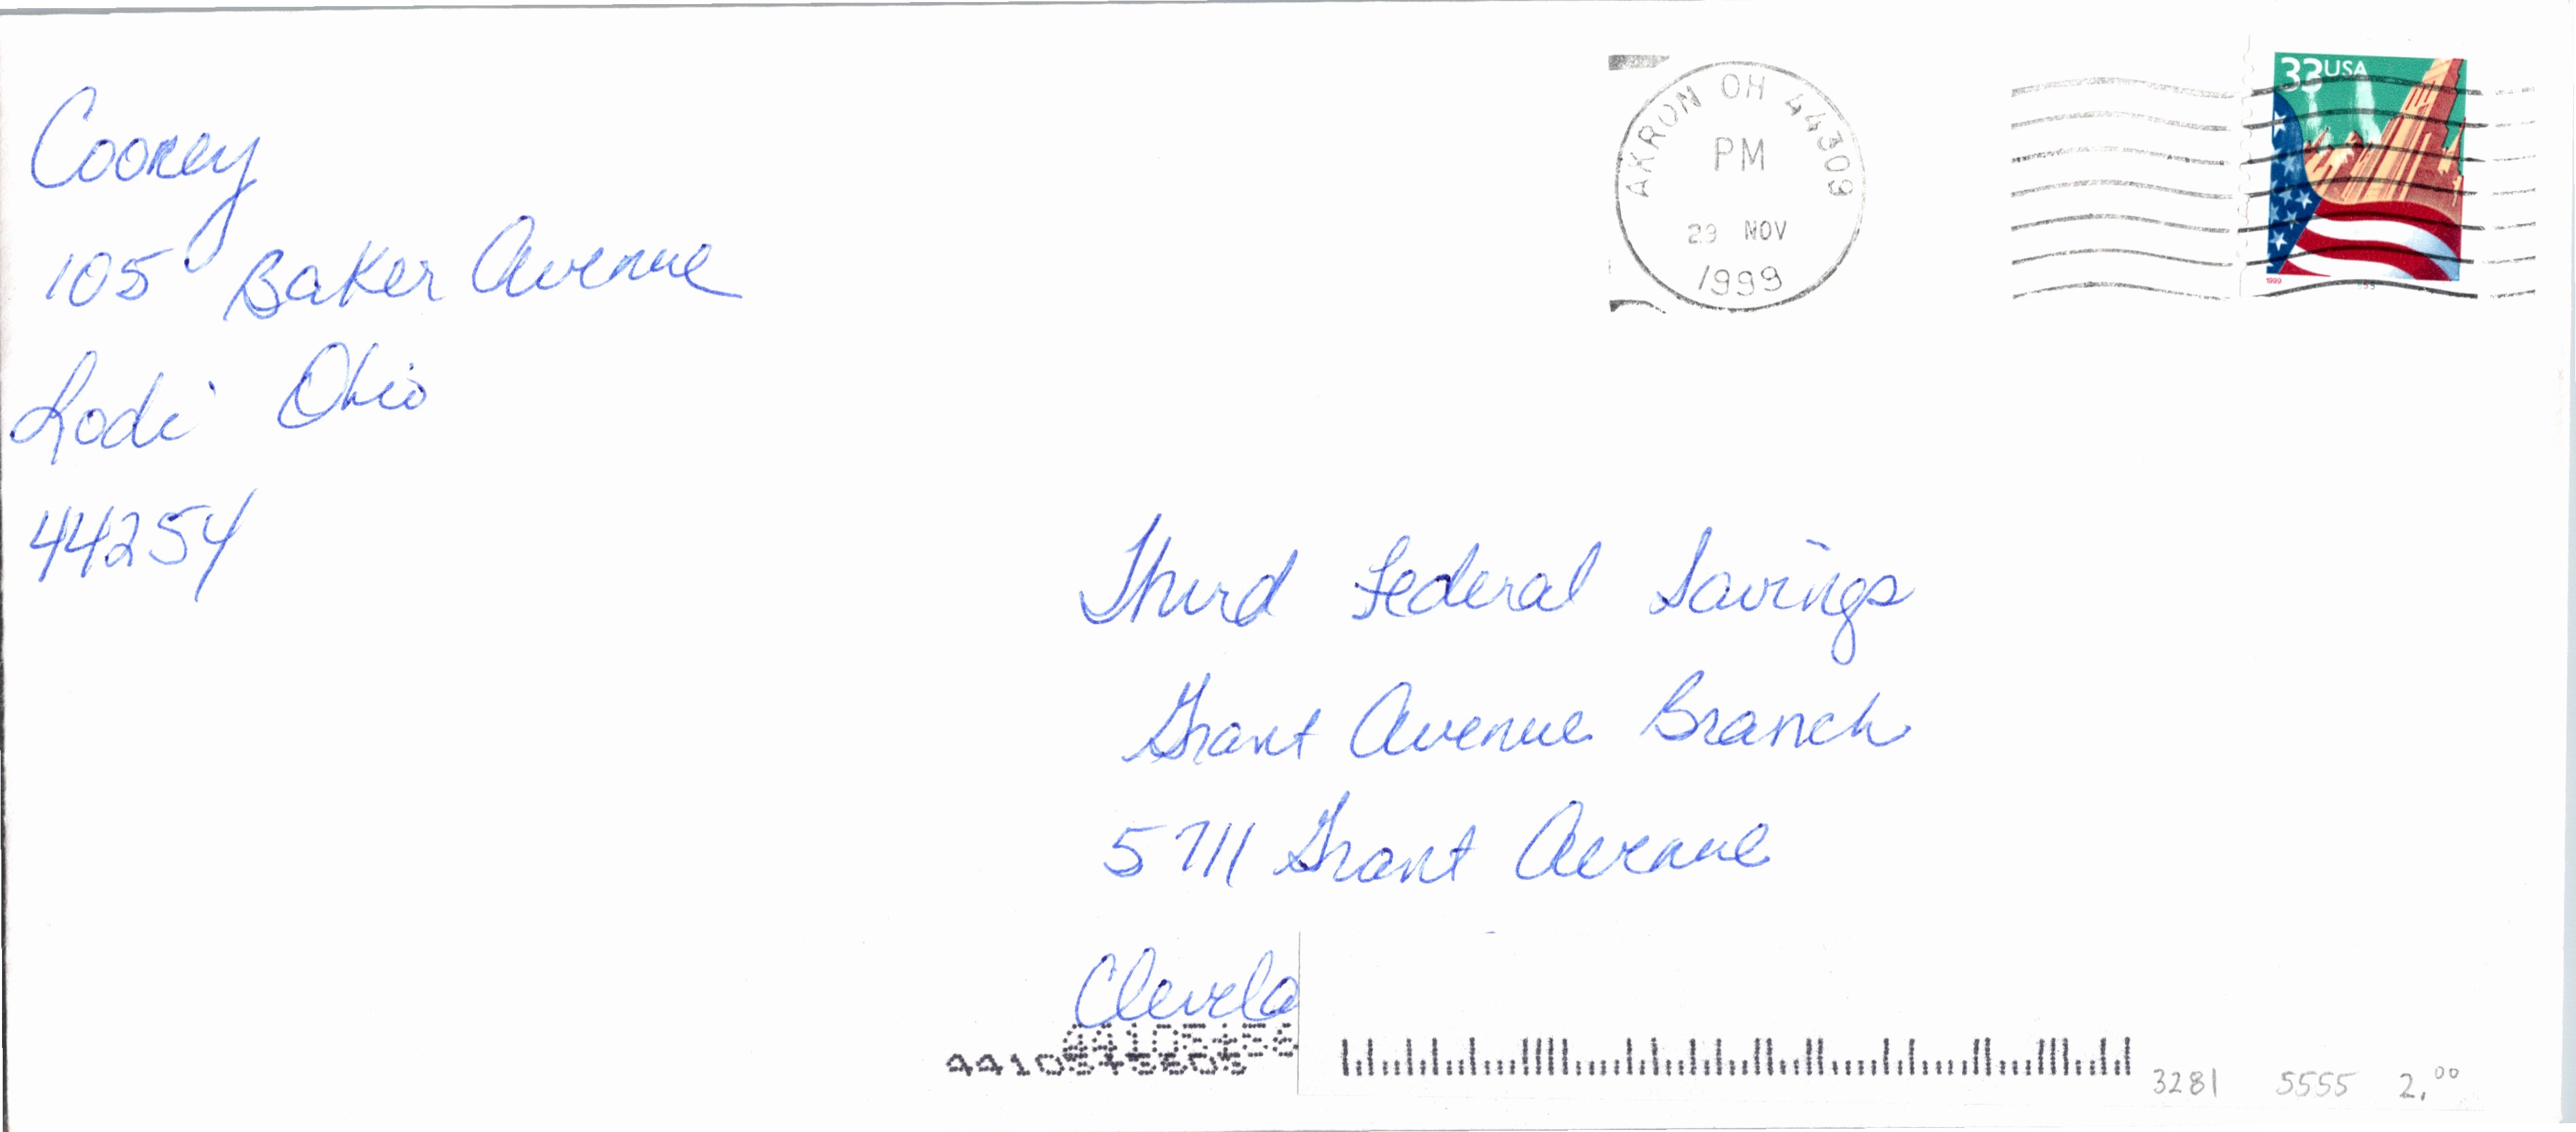 Cooney
105 Baker Avenue
Lodi Ohio
44254
AKRON OH 44309
PM
29 NOV
1999
33USA
1999
Third Federal Savings
Grant Avenue Branch
5711 Grant Avenue
Clevela
3281 5555 2.00